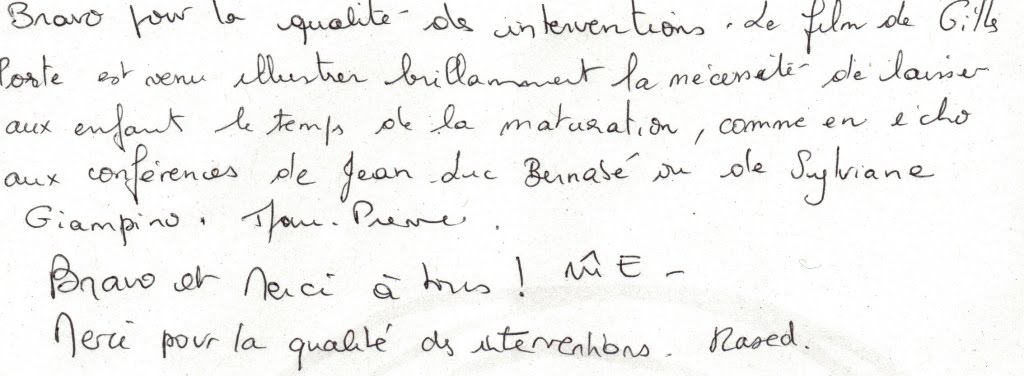 Bravo pour la qualité des interventions. Le film de Gilles
Porte est venu illustrer brillamment la nécessité de laisser
aux enfant le temps de la maturation, comme en écho
aux conférences de Jean-Luc Bernabé ou de Sylviane
Giampino. Jean-Pierre.
Bravo et Merci à tous !
Merci pour la qualité des interventions. Rased.